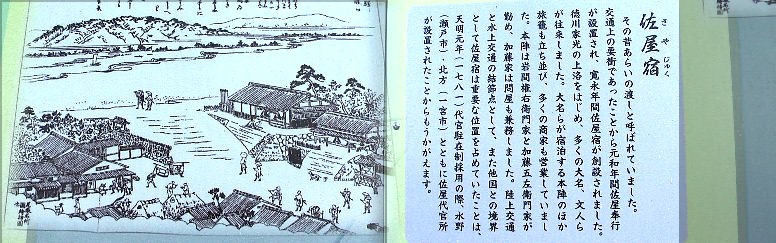 佐屋宿
さやじゅく
その昔あらいの渡しと呼ばれていました。
交通上の要衝であったことから元和年間佐屋奉行
が設置され、寛永年間佐屋宿が創設されました。
徳川家光の上洛をはじめ、多くの大名、文人ら
が往来しました。大名らが宿泊する本陣のほか
旅籠も立ち並び、多くの商家も営業していまし
た。本陣は岩間権右衛門家と加藤五左衛門家が
勤め、加藤家は問屋も兼務しました。陸上交通
と水上交通の結節点として、また他国との境界
として佐屋宿は重要な位置を占めていたことは、
天明元年（一七八一）代官駐在制採用の際、水野
（瀬戸市）・北方（一宮市）とともに佐屋代官所
が設置されたことからもうかがえます。